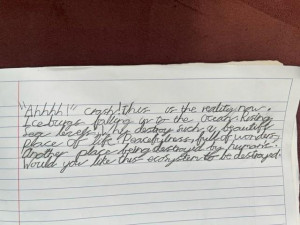 "Ahhhh!" crash! this is the reality now.
Icebergs falling up to the Ocean. Rising
sea levels. Why destroy such a beautiful
place of life. Peacefulness, full of wonders
Another place being destroyed by humans.
Would you like this ecosystem to be destroyed.